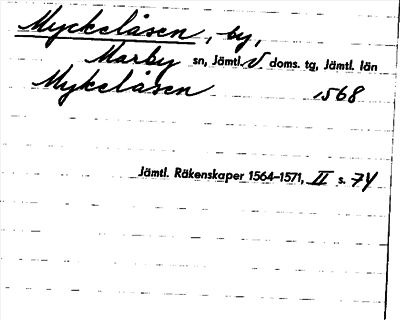 Myckelåsen, by,
Marby sn, Jämtl. V doms. tg, Jämtl. län
Mykelåsen 1568
Jämtl. Räkenskaper 1564–1571, II s. 74